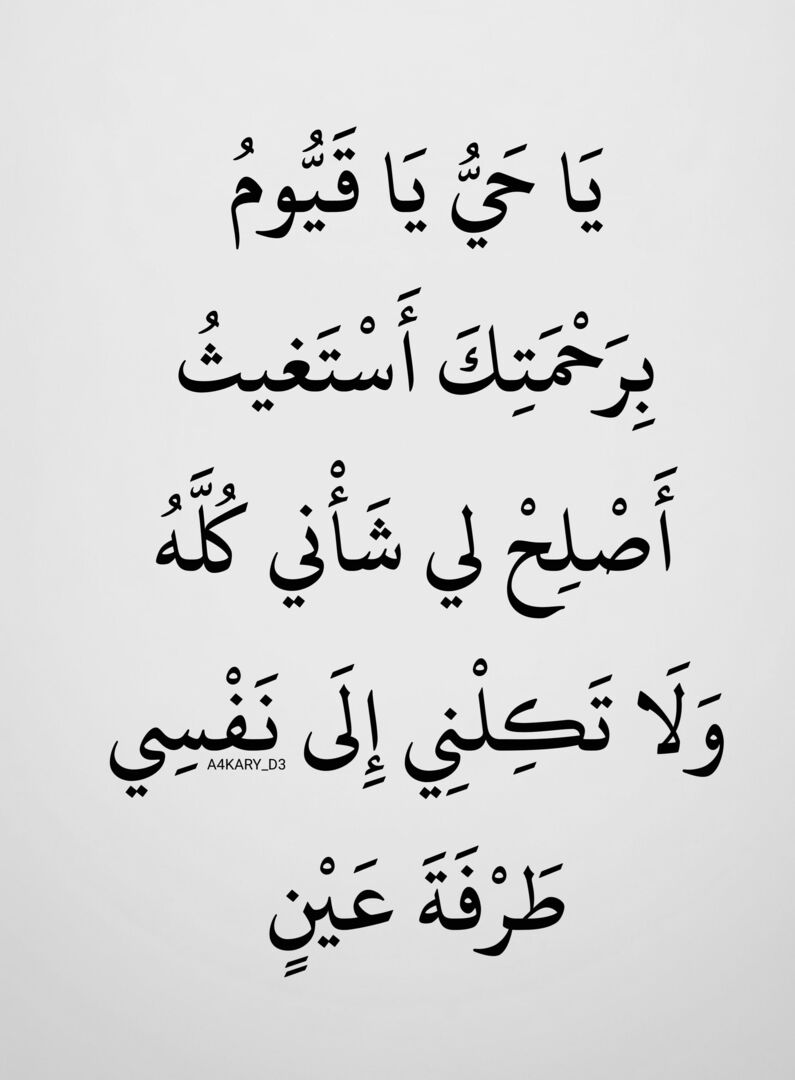 يَا حَيُّ يَا قَيُّومُ
بِرَحْمَتِكَ أَسْتَغيثُ
أَصْلِحْ لي شَأْني كُلَّهُ
وَلَا تَكِلْنِي إِلَى نَفْسِي
A4KARY_D3
طَرْفَةَ عَيْنٍ